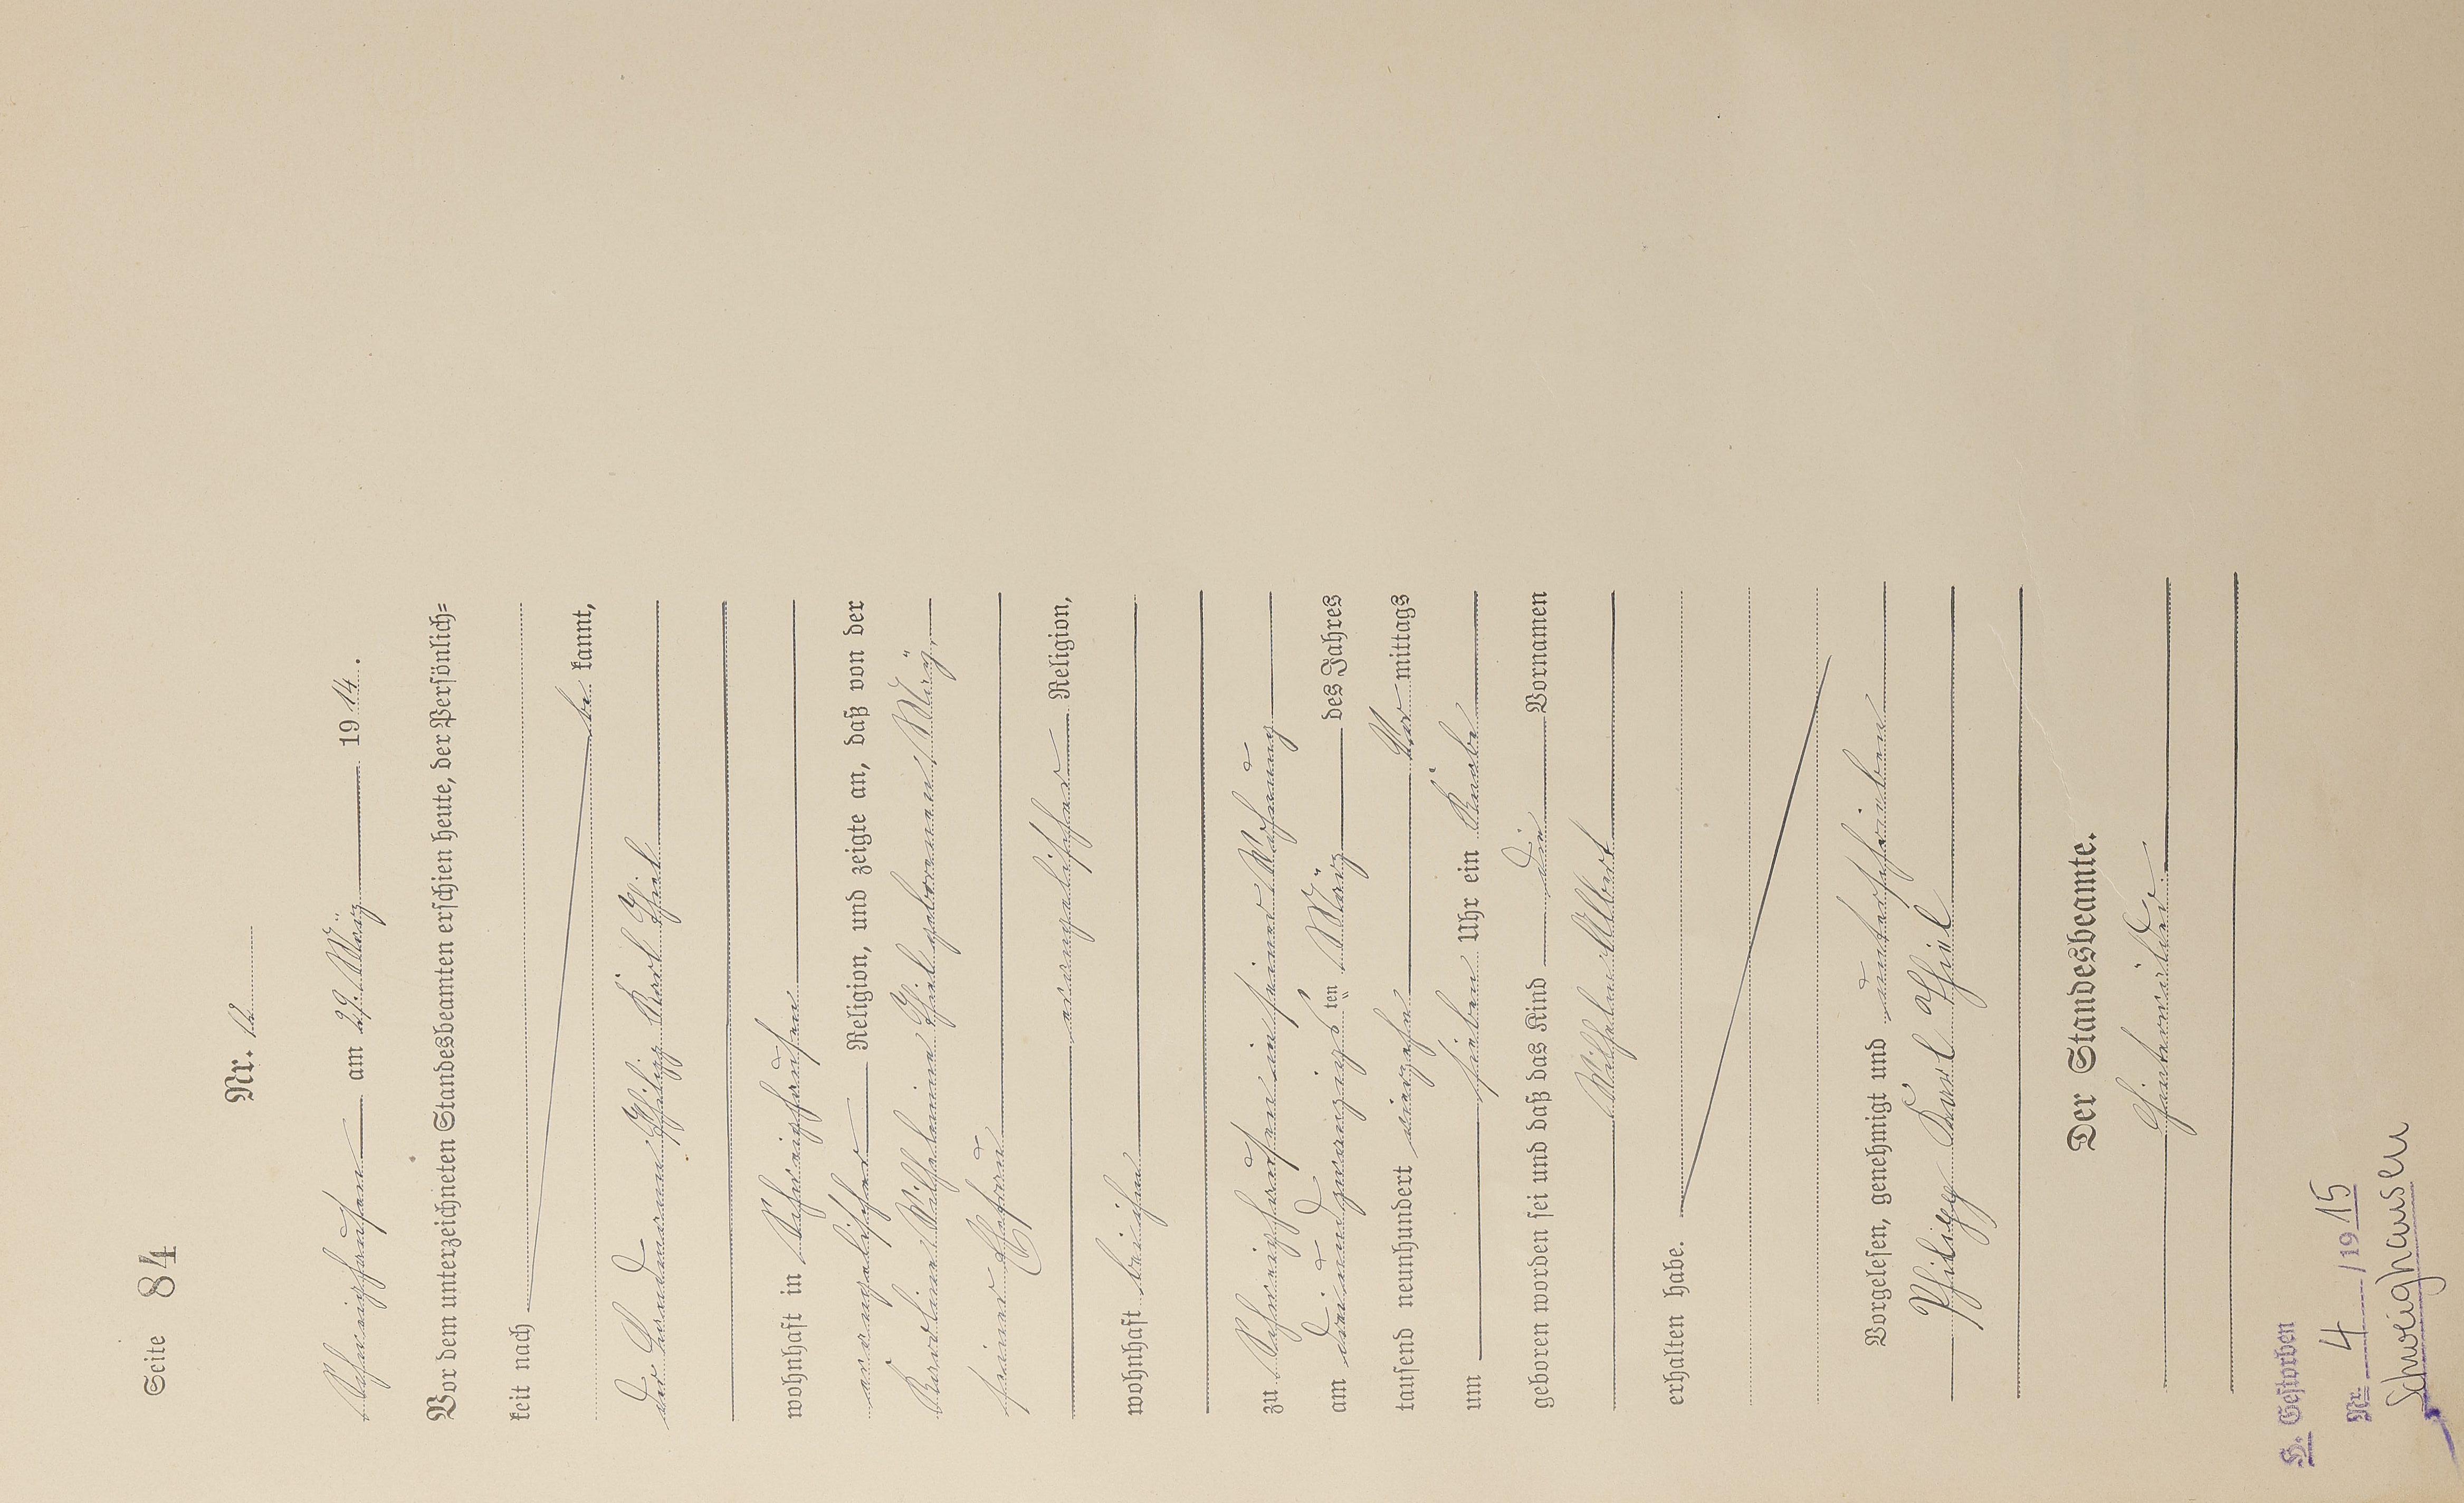 Seite 84
Nr. 12
Schweighausen am 29. März 1914.
Vor dem unterzeichneten Standesbeamten erschien heute, der Persönlich⸗
keit nach
be kannt,
der Landmann Philipp Karl Thiel
wohnhaft in Schweighausen
evangelischer Religion, und zeigte an, daß von der
Karoline Wilhelmine Thiel geborenen März,
seiner Ehefrau
evangelischer Religion,
wohnhaft bei ihm
zu Schweighausen in seiner Wohnung
am dreiundzwanzigsten März des Jahres
tausend neunhundert vierzehn Vor mittags
um sieben Uhr ein Knabe
geboren worden sei und daß das Kind die Vornamen
Wilhelm Albert
erhalten habe.
Vorgelesen, genehmigt und unterschrieben
Philipp Karl Thiel
Der Standesbeamte.
H. Gestorben
Nr. 4 / 1915
Schweighausen